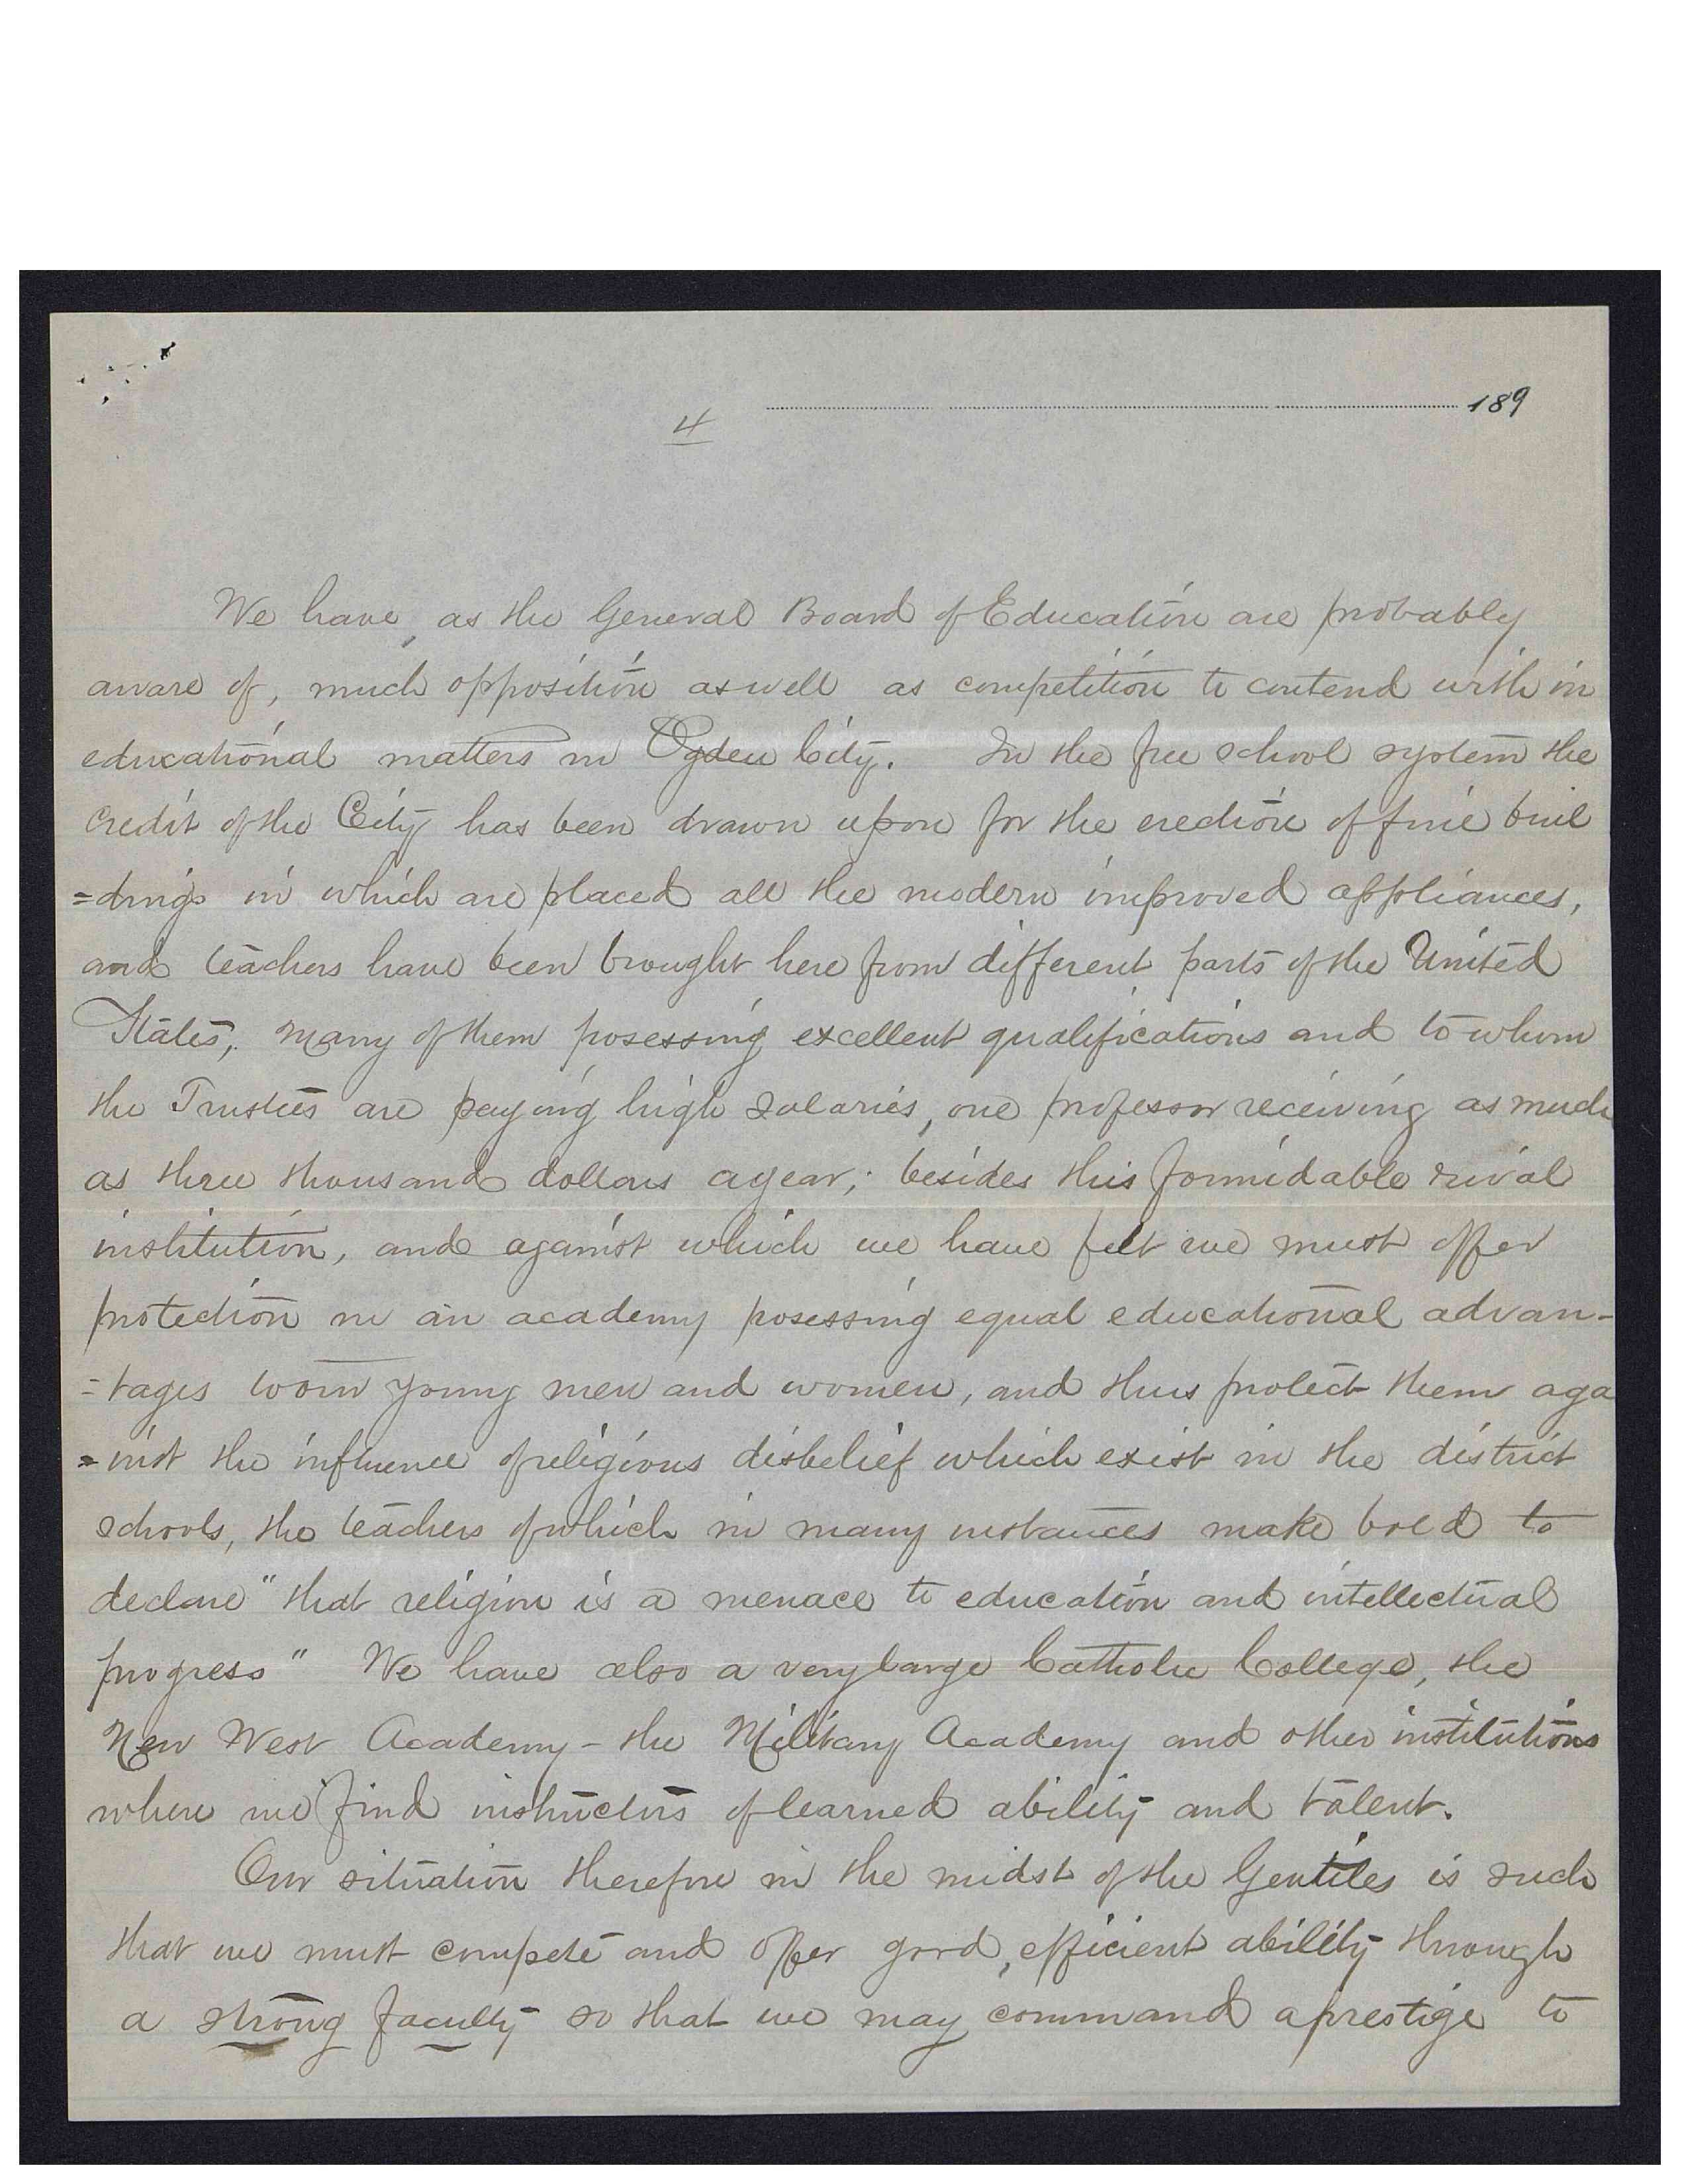 189
4
We have, as the General Board of Education are probably
aware of, much opposition as well as competition to contend with in
educational matters in Ogden City. In the free school system the
credit of the City has been drawn upon for the erection of fine buil
=dings in which are placed all the modern improved appliances,
and teachers have been brought here from different parts of the United
States, many of them posessing excellent qualifications and to whom
the Trustees are paying high salaries, one professor receiving as much
as three thousand dollars a year; besides this formidable rival
institution, and against which we have felt we must offer
protection in an academy posessing equal educational advan-
=tages to our young men and women, and thus protect them aga
=inst the influence of religious disbelief which exist in the district
schools, the teachers of which in many instances make bold to
declare "that religion is a menace to education and intellectual
progress" We have also a very large Catholic College, the
New West Academy - the Military Academy and other institutions
where we find instructors of learned ability and talent.
Our situation therefore in the midst of the Gentiles is such
that we must compete and offer good, efficient ability through
a strong faculty so that we may command a prestige to